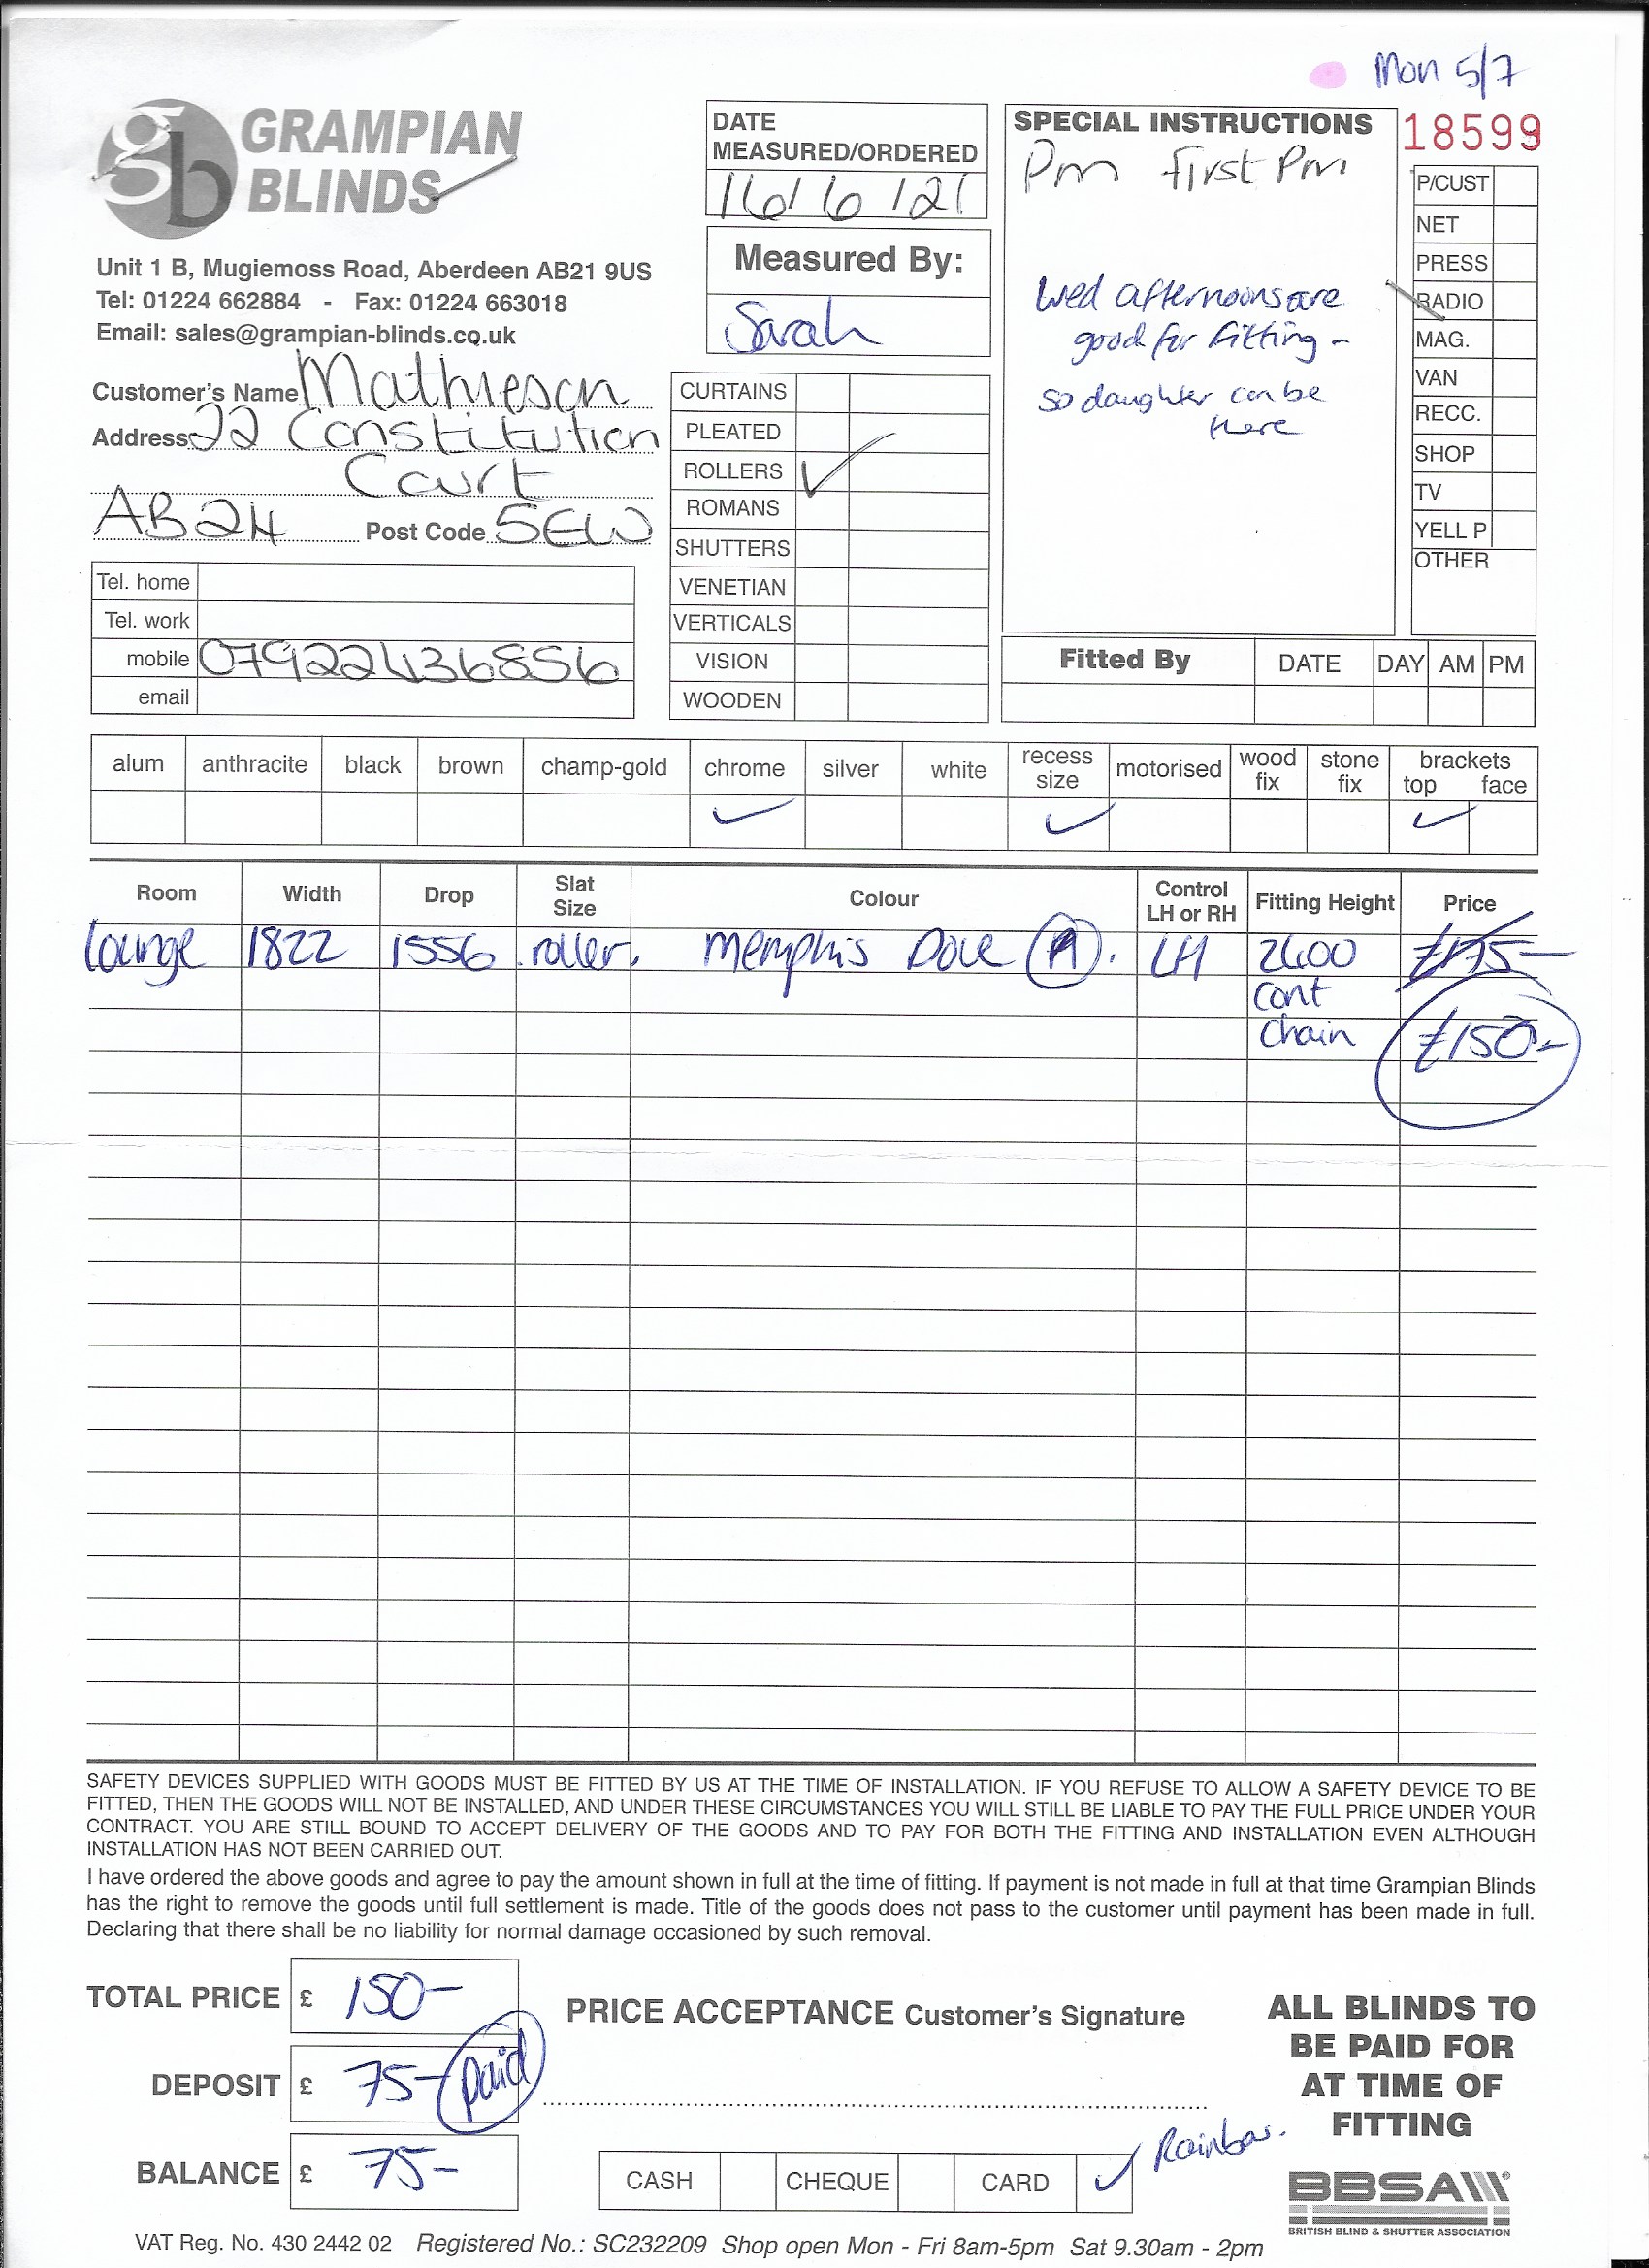 Mon 5/7
GRAMPIAN
BLINDS
Unit 1 B, Mugiemoss Road, Aberdeen AB21 9US
Tel: 01224 662884 - Fax: 01224 663018
Email: sales@grampian-blinds.co.uk
Customer's Name Mathieson
Address 22 Constitution
Court
AB24 Post Code 5EW
Tel. home
Tel. work
mobile 07922436856
email
DATE
MEASURED/ORDERED
16/6/21
Measured By:
Sarah
CURTAINS
PLEATED
ROLLERS ✓
ROMANS
SHUTTERS
VENETIAN
VERTICALS
VISION
WOODEN
SPECIAL INSTRUCTIONS
Pm first Pm
Wed afternoons are
good for fitting -
so daughter can be
there
18599
P/CUST
NET
PRESS
RADIO
MAG.
VAN
RECC.
SHOP
TV
YELL P
OTHER
Fitted By DATE DAY AM PM
alum anthracite black brown champ-gold chrome silver white recess size motorised wood fix stone fix brackets top face
✓ ✓ ✓
Room Width Drop Slat Size Colour Control LH or RH Fitting Height Price
lounge 1822 1556 roller. Memphis Dove (A). LH 2600 £175-
Cont
Chain £150-
SAFETY DEVICES SUPPLIED WITH GOODS MUST BE FITTED BY US AT THE TIME OF INSTALLATION. IF YOU REFUSE TO ALLOW A SAFETY DEVICE TO BE
FITTED, THEN THE GOODS WILL NOT BE INSTALLED, AND UNDER THESE CIRCUMSTANCES YOU WILL STILL BE LIABLE TO PAY THE FULL PRICE UNDER YOUR
CONTRACT. YOU ARE STILL BOUND TO ACCEPT DELIVERY OF THE GOODS AND TO PAY FOR BOTH THE FITTING AND INSTALLATION EVEN ALTHOUGH
INSTALLATION HAS NOT BEEN CARRIED OUT.
I have ordered the above goods and agree to pay the amount shown in full at the time of fitting. If payment is not made in full at that time Grampian Blinds
has the right to remove the goods until full settlement is made. Title of the goods does not pass to the customer until payment has been made in full.
Declaring that there shall be no liability for normal damage occasioned by such removal.
TOTAL PRICE £ 150-
DEPOSIT £ 75- paid
BALANCE £ 75-
PRICE ACCEPTANCE Customer's Signature
CASH CHEQUE CARD ✓
ALL BLINDS TO
BE PAID FOR
AT TIME OF
FITTING
BBSA
BRITISH BLIND & SHUTTER ASSOCIATION
VAT Reg. No. 430 2442 02 Registered No.: SC232209 Shop open Mon - Fri 8am-5pm Sat 9.30am - 2pm